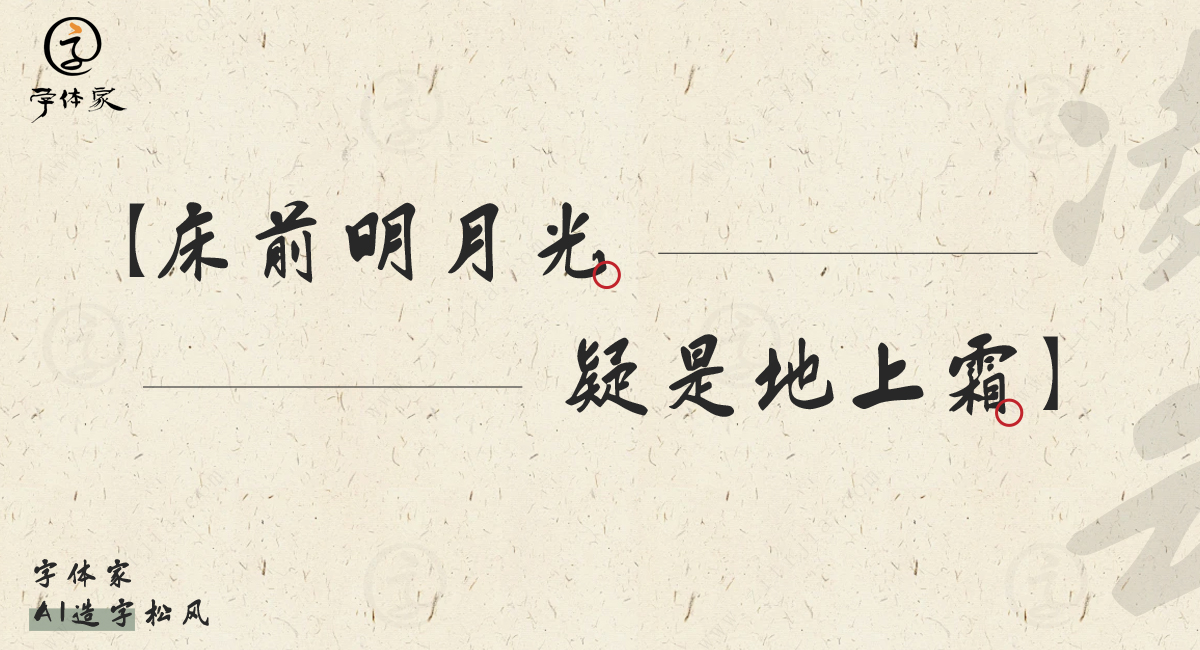 字
字体家
【床前明月光，
疑是地上霜】
字体家
AI造字松风